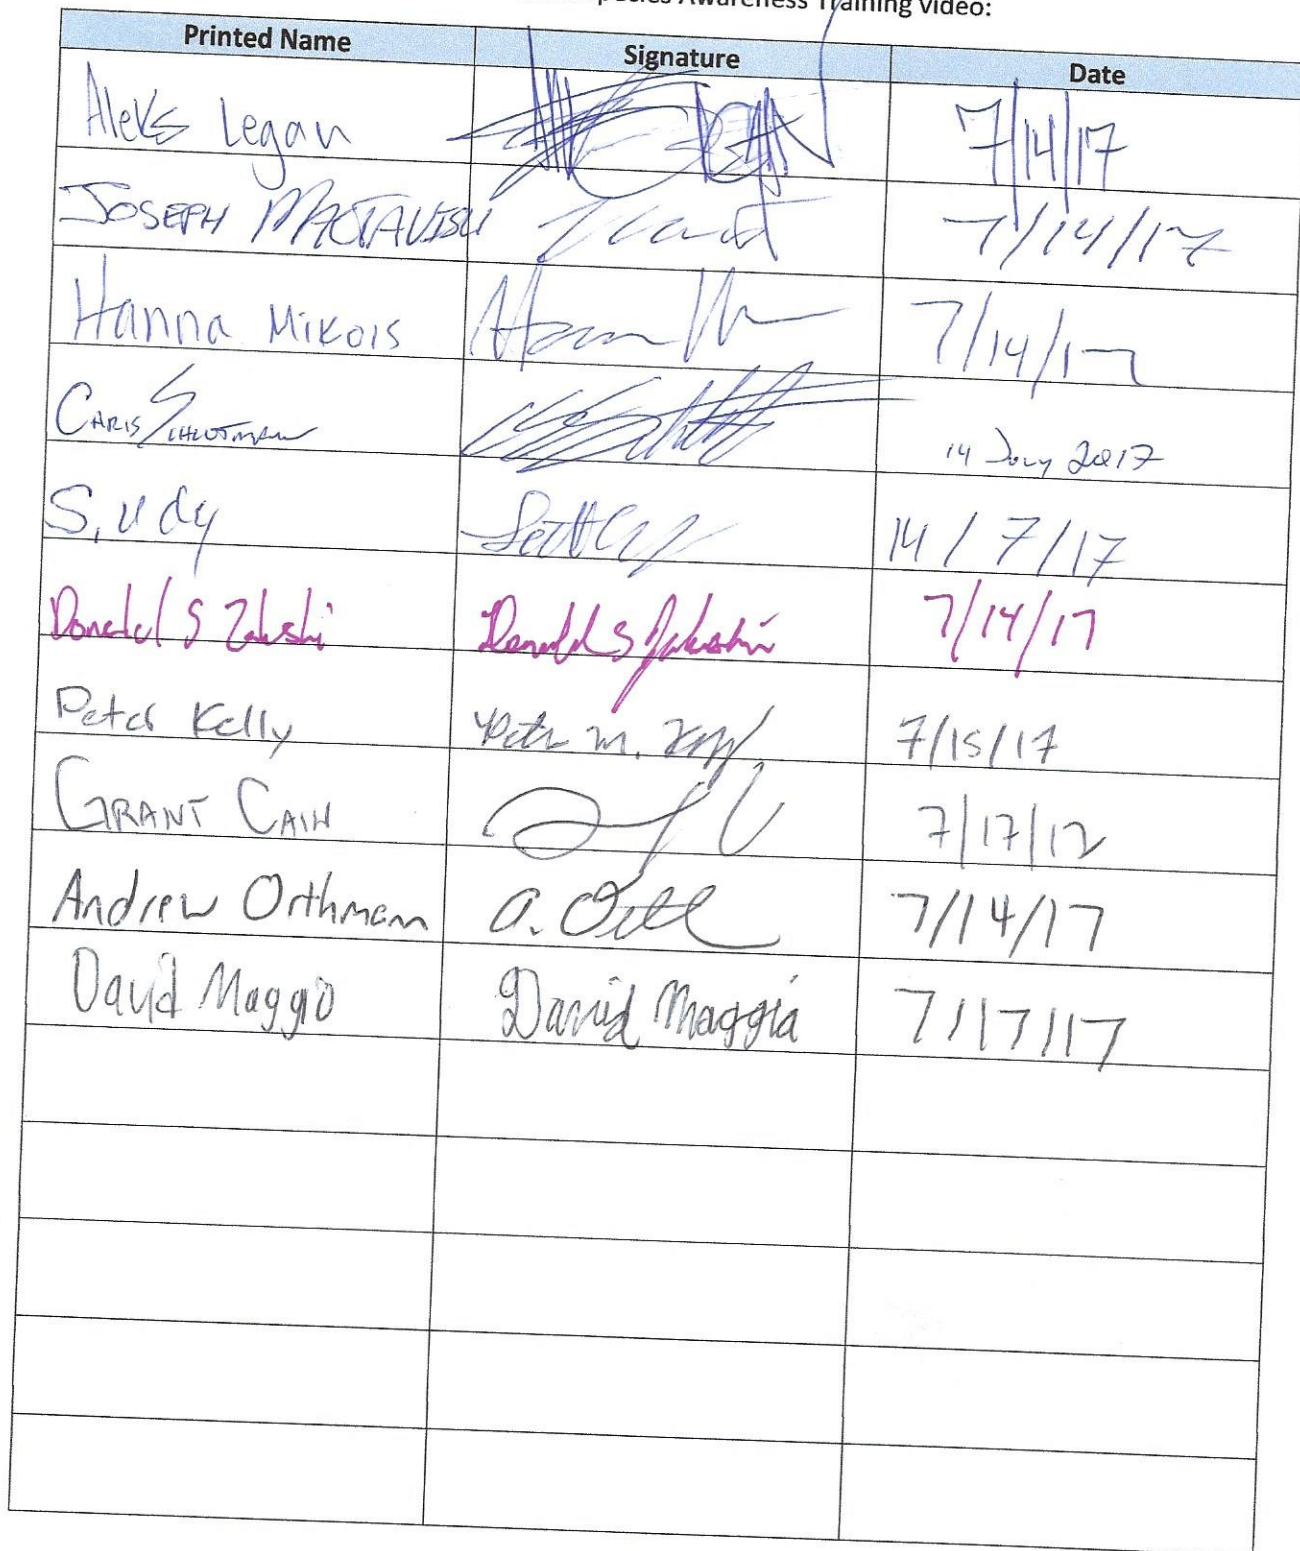 Awareness Training video:
Printed Name Signature Date
Aleks Legan 7/14/17
JOSEPH MACTAVISH 7/14/17
Hanna Mikois 7/14/17
CHRIS 14 July 2017
S, udy 14 / 7/17
Donald S Zaluski Donald S 7/14/17
Peter Kelly Peter M. 7/15/17
GRANT CAIN 7/17/17
Andrew Orthmann A. 7/14/17
David Maggio David Maggio 7/17/17